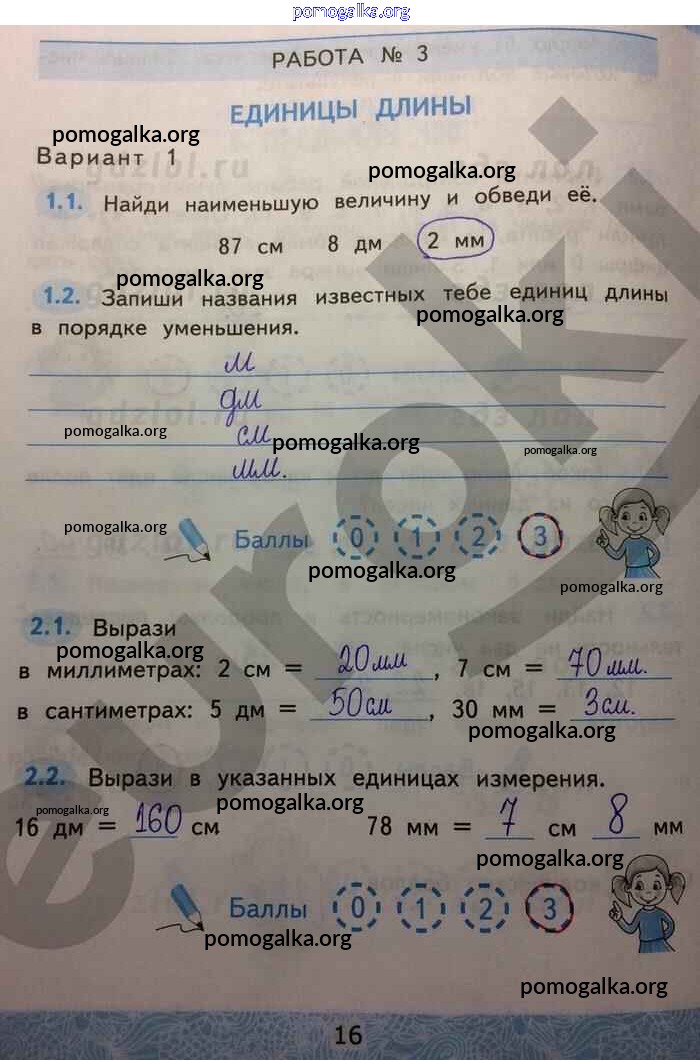 pomogalka.org
РАБОТА № 3
ЕДИНИЦЫ ДЛИНЫ
pomogalka.org
Вариант 1
pomogalka.org
1.1. Найди наименьшую величину и обведи её.
87 см 8 дм 2 мм
pomogalka.org
1.2. Запиши названия известных тебе единиц длины
pomogalka.org
в порядке уменьшения.
м
дм
см
pomogalka.org
pomogalka.org
pomogalka.org
мм.
pomogalka.org
Баллы 0 1 2 3
pomogalka.org
pomogalka.org
2.1. Вырази
pomogalka.org
в миллиметрах: 2 см = 20мм, 7 см = 70мм.
в сантиметрах: 5 дм = 50см, 30 мм = 3см.
pomogalka.org
2.2. Вырази в указанных единицах измерения.
pomogalka.org
pomogalka.org
16 дм = 160 см 78 мм = 7 см 8 мм
pomogalka.org
Баллы 0 1 2 3
pomogalka.org
pomogalka.org
16
euroki